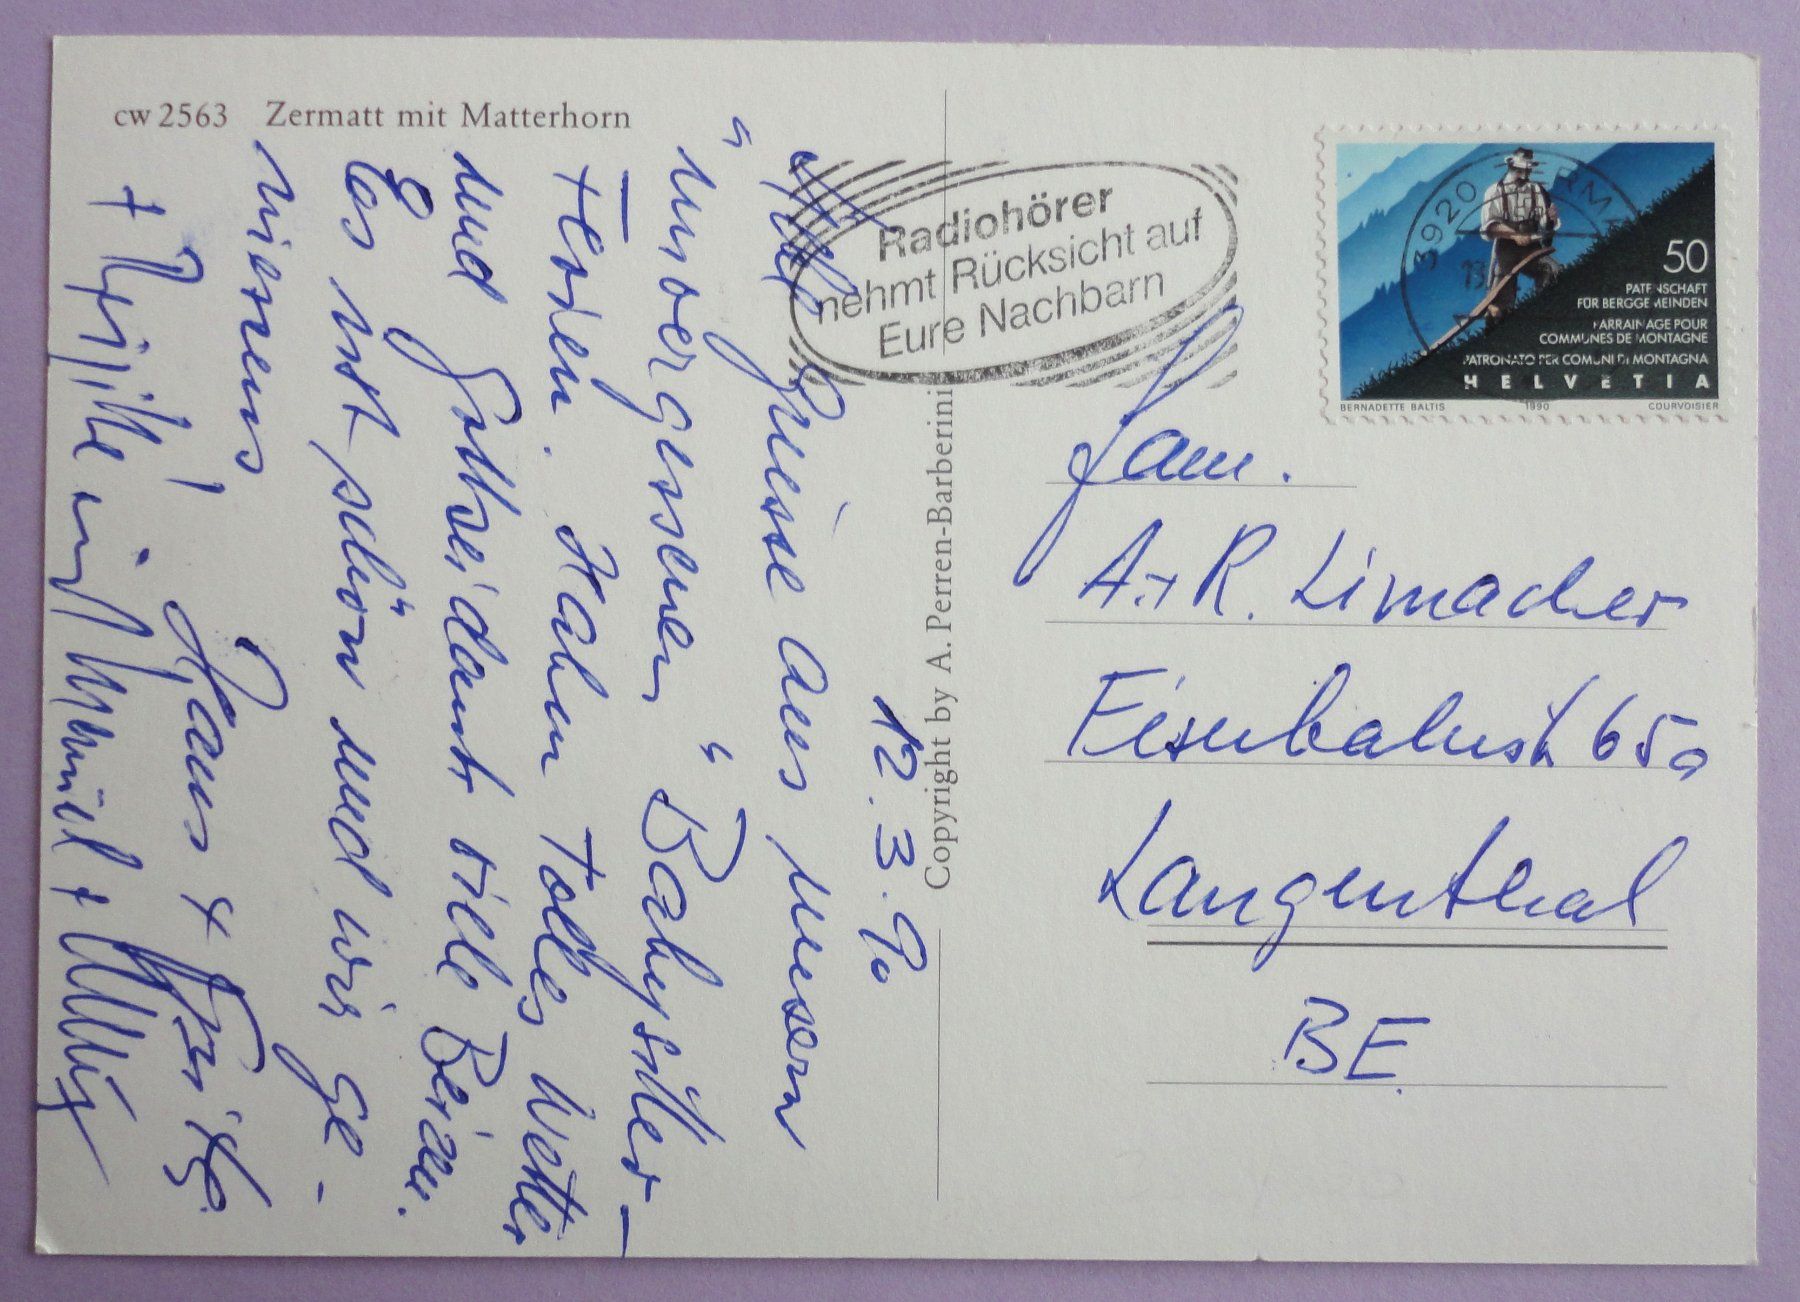 cw 2563 Zermatt mit Matterhorn
12. 3. 90
Viele Grüsse aus unsern
"unvergessenen" Babysitter-
Ferien. Haben tolles Wetter
und Gottseidank viele Beizen.
Es ist schön und wir ge-
niessens!
Hans +
+
Copyright by A. Perren-Barberini
Radiohörer
nehmt Rücksicht auf
Eure Nachbarn
3920 ZERMATT
50
PATENSCHAFT
FÜR BERGGEMEINDEN
PARRAINAGE POUR
COMMUNES DE MONTAGNE
PATRONATO PER COMUNI DI MONTAGNA
HELVETIA
BERNADETTE BALTIS 1990 COURVOISIER
Fam.
A.+R. Limacher
Eisenbahnst 65a
Langenthal
BE